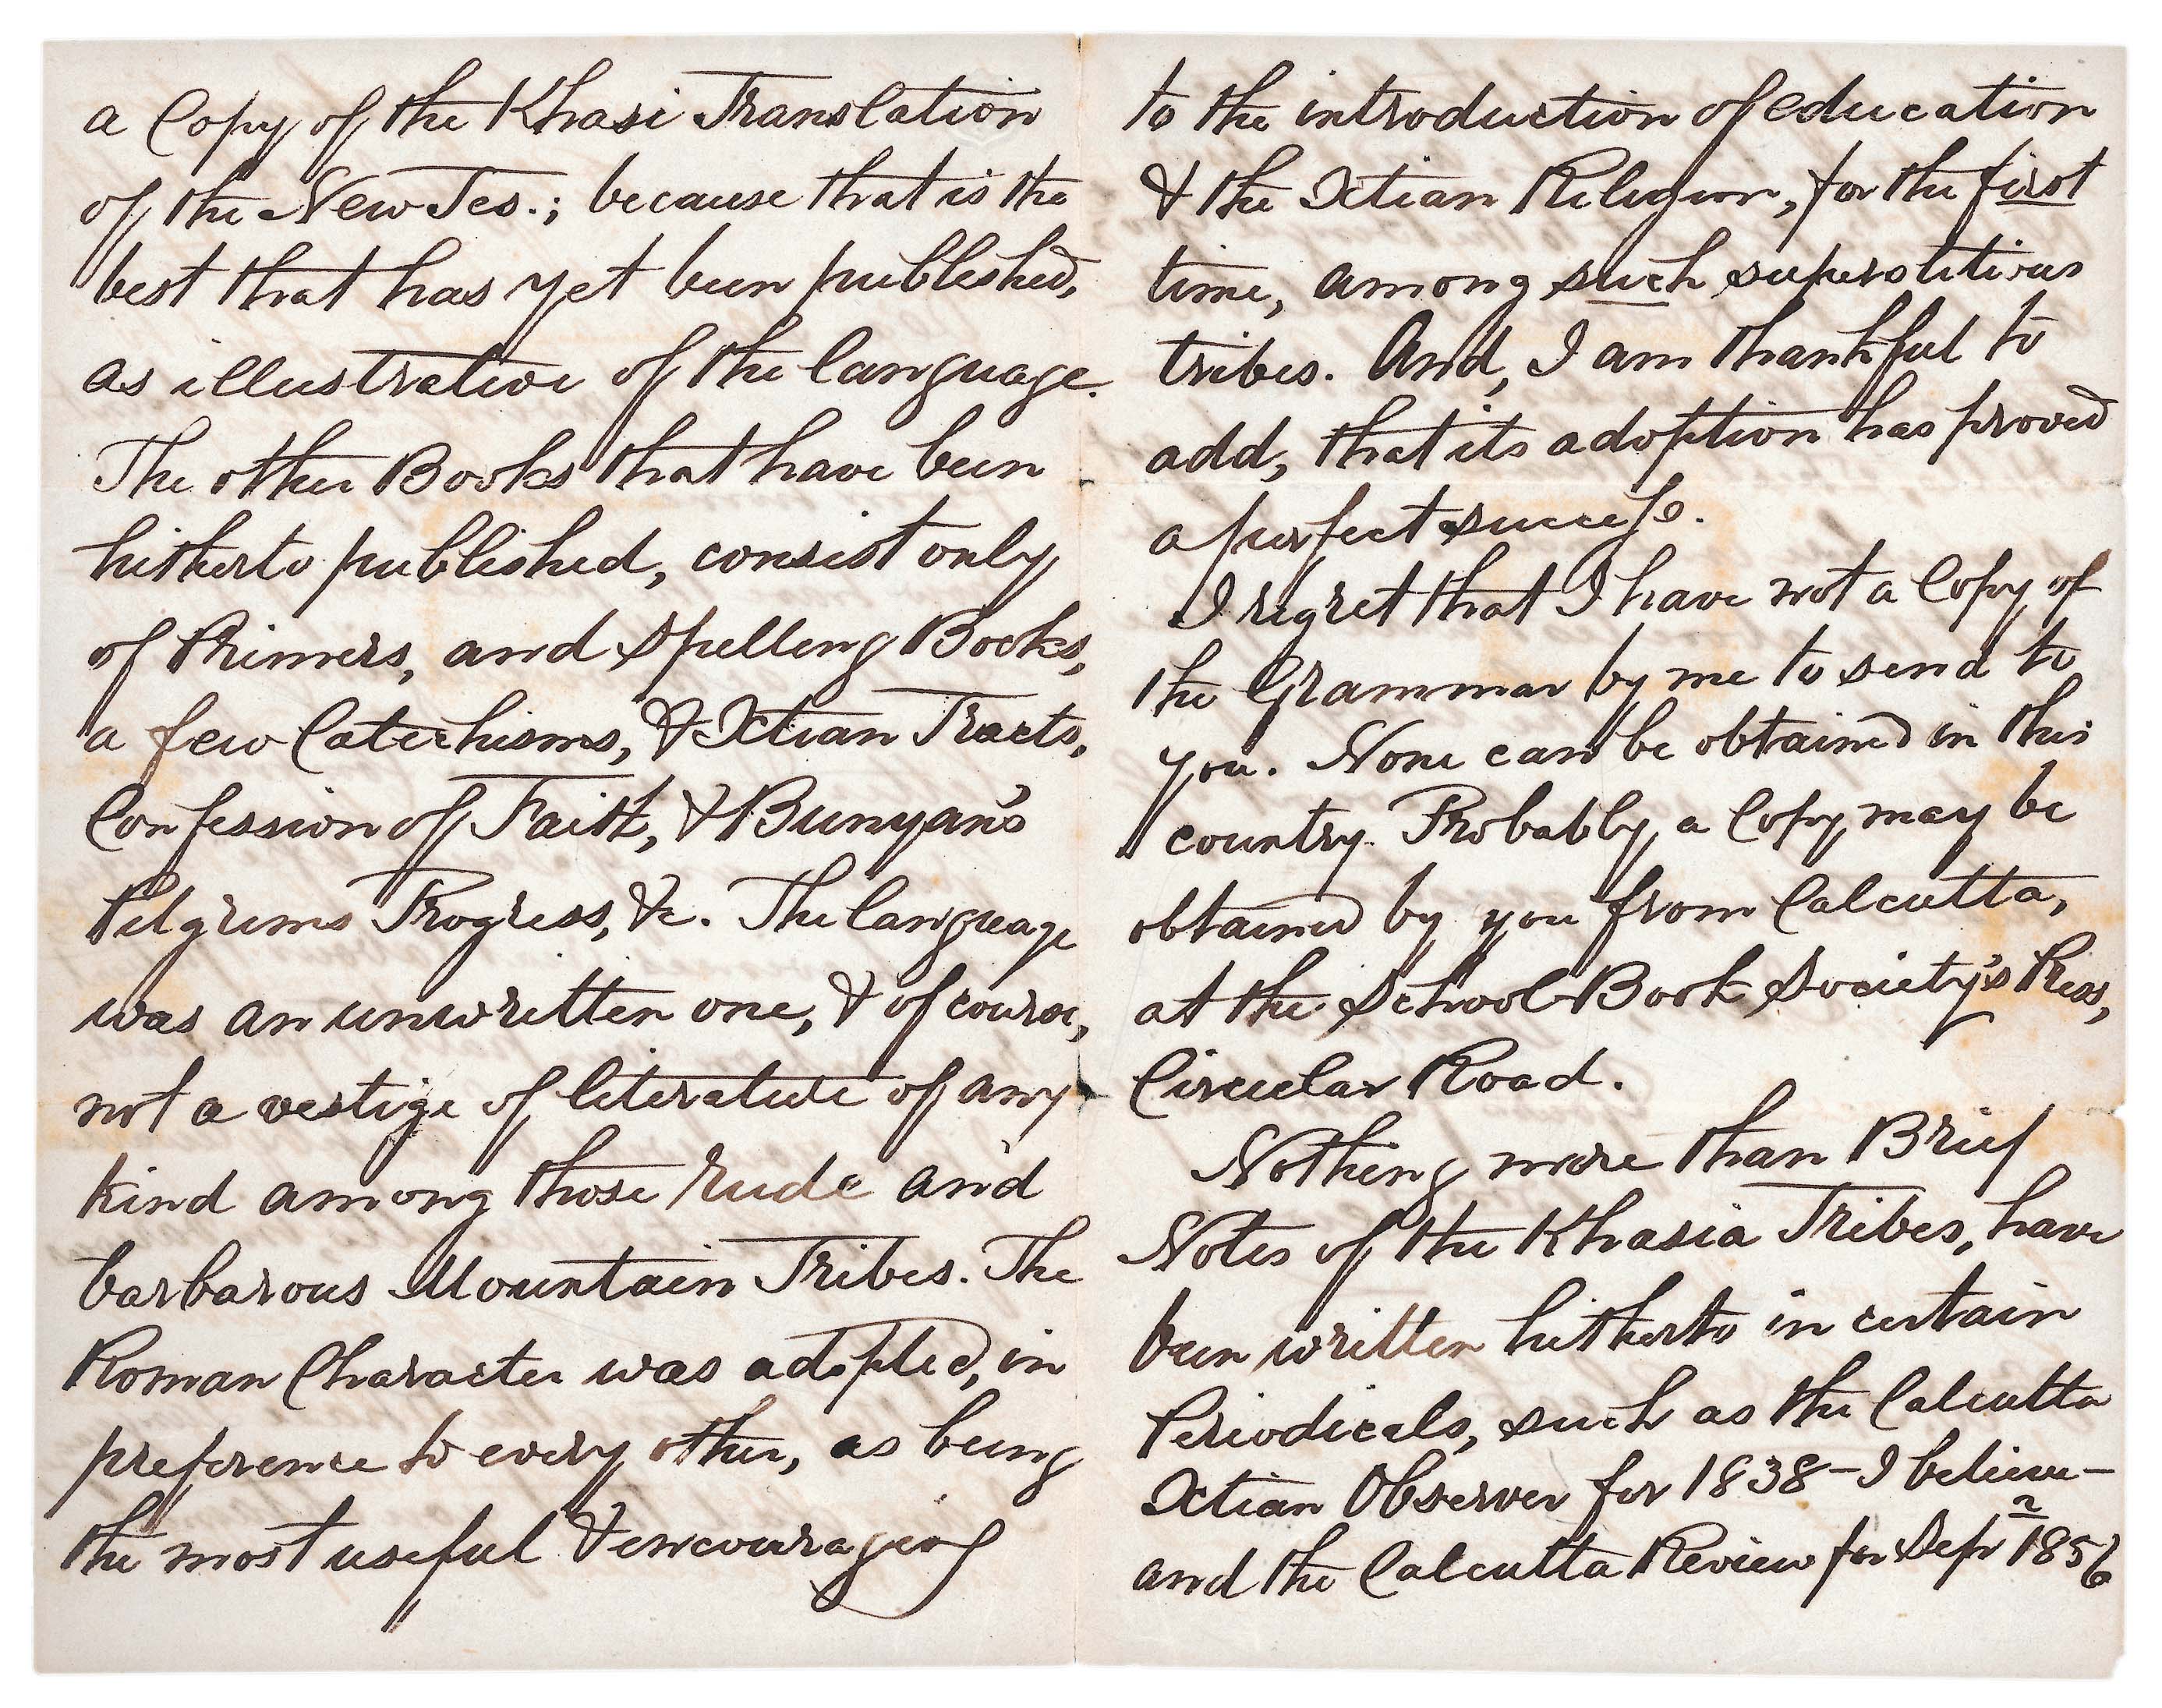 a Copy of the Khasi Translation
of the New Tes.; because that is the
best that has yet been published,
as illustrative of the language.
The other Books that have been
hitherto published, consist only
of Primers, and Spelling Books,
a few Catechisms, & Xtian Tracts,
Confession of Faith, & Bunyan's
Pilgrims Progress, &c. The language
was an unwritten one, & of course,
not a vestige of literature of any
kind among those rude and
barbarous Mountain Tribes. The
Roman Character was adopted, in
preference to every other, as being
the most useful & encouraging
to the introduction of education
& the Xtian Religion, for the first
time, among such superstitious
tribes. And, I am thankful to
add, that its adoption has proved
a perfect success.
I regret that I have not a Copy of
the Grammar by me to send to
you. None can be obtained in this
country. Probably, a Copy may be
obtained by you from Calcutta,
at the School Book Society's Press,
Circular Road.
Nothing more than Brief
Notes of the Khasia Tribes, have
been written hitherto in certain
Periodicals, such as the Calcutta
Xtian Observer for 1838 - I believe -
and the Calcutta Review for Sepr 1856